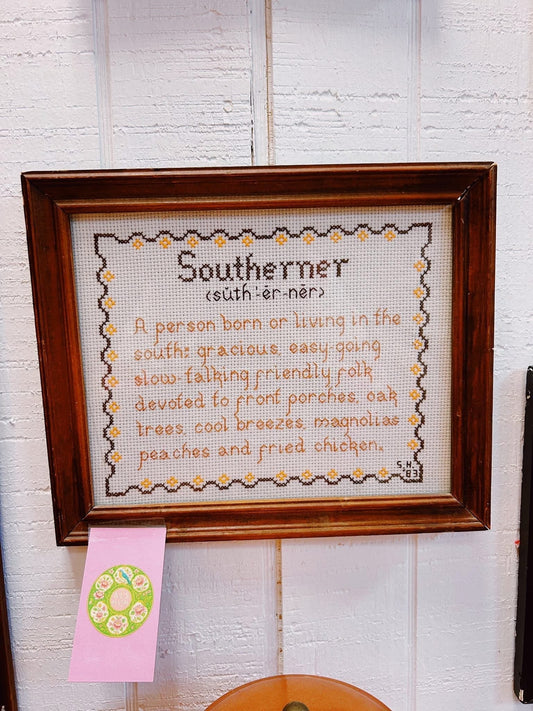 Southerner
(sŭth′-ēr-nēr)
A person born or living in the
south; gracious, easy-going
slow-talking friendly folk
devoted to front porches, oak
trees, cool breezes, magnolias
peaches and fried chicken.
S.H.
'83